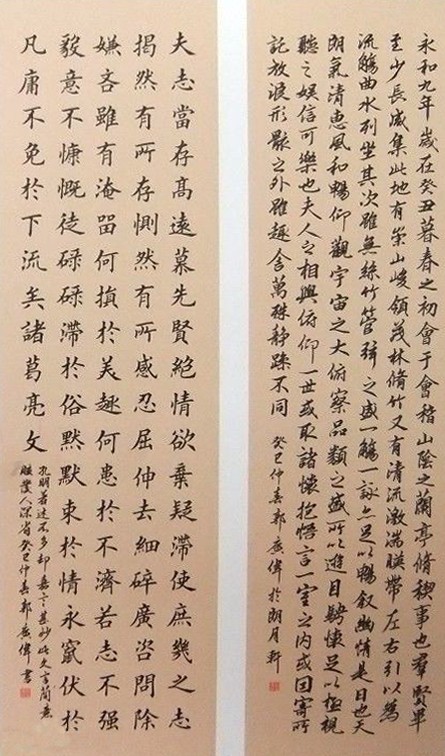 永和九年歲在癸丑暮春之初會于會稽山陰之蘭亭脩稧事也羣賢畢
至少長咸集此地有崇山峻領茂林脩竹又有清流激湍暎帶左右引以為
流觴曲水列坐其次雖無絲竹管弦之盛一觴一詠亦足以暢敘幽情是日也天
朗氣清惠風和暢仰觀宇宙之大俯察品類之盛所以遊目騁懷足以極視
聽之娛信可樂也夫人之相與俯仰一世或取諸懷抱悟言一室之內或因寄所
託放浪形骸之外雖趣舍萬殊静躁不同 癸巳仲春郭廣偉於朗月軒
夫志當存髙遠慕先賢絕情欲棄疑滯使庶幾之志
揭然有所存惻然有所感忍屈伸去細碎廣咨問除
嫌吝雖有淹畱何損於美趣何患於不濟若志不强
毅意不慷慨徒碌碌滯於俗默默束於情永竄伏於
凡庸不免於下流矣諸葛亮文
孔明著述不多却嘉言甚妙此文言簡意
發人深省癸巳仲春郭廣偉書